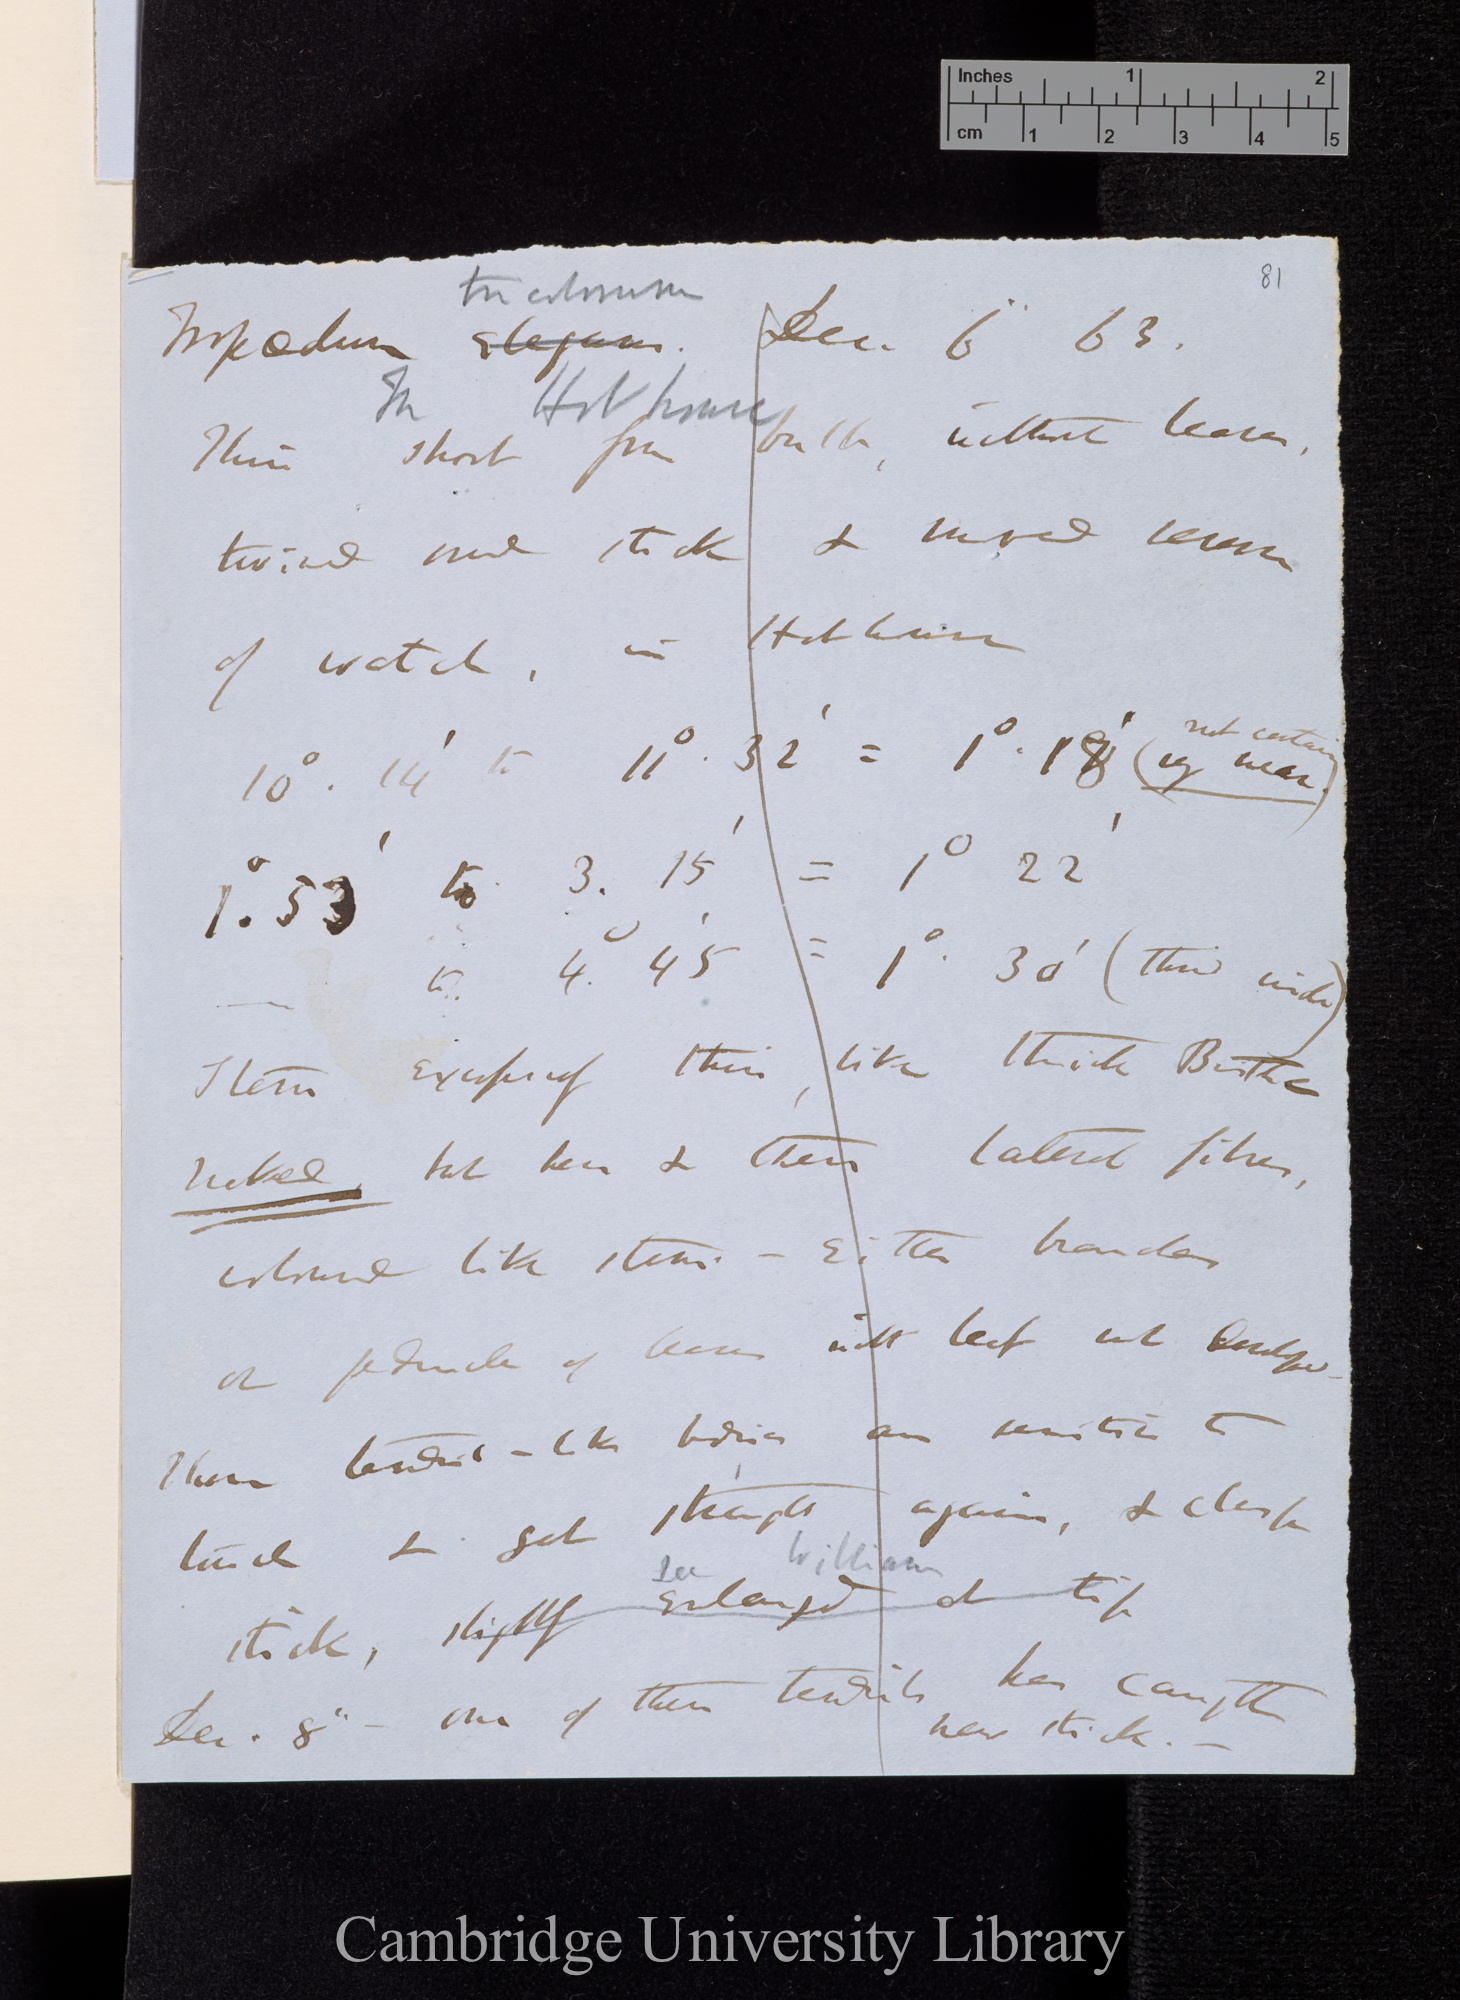 Inches 1 2
cm 1 2 3 4 5
81
tricolorum
Tropæolum elegans. Dec. 6" 63.
In Hot house
Thin shoot from bulb, without leaves,
twined round stick & moved reverse
of watch, in Hot house
10°. 14' to 11°. 32' = 1°. 18' (very near.) not certain
1°. 53' to 3. 15' = 1° 22'
— to. 4°. 45' = 1°. 30' (third circle)
Stem excessively thin, like thick Bristle
naked, but here & there lateral fibres,
coloured like stem. – Either branches
or peduncle of leaves with leaf not develope–
These tendril-like bodies are sensitive to
touch & get straight again, & clasp
See William
stick, slightly enlarged at tip
Dec. 8" – one of these tendrils has caught
near stick. –
Cambridge University Library